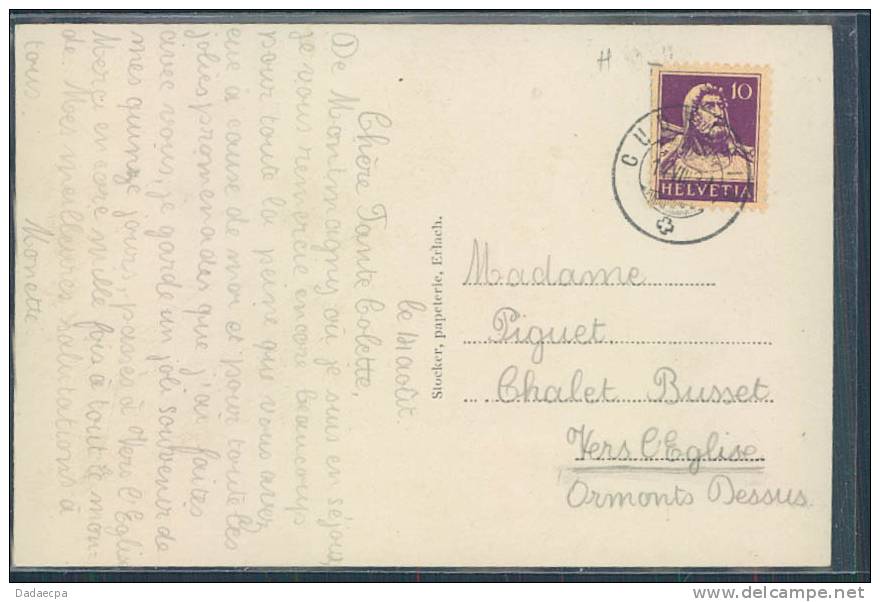 le 14 août.
Chère Tante Colette,
De Montmagny où je suis en séjour,
je vous remercie encore beaucoup
pour toute la peine que vous avez
eue à cause de moi et pour toute les
jolies promenades que j'ai faites
avec vous, je garde un joli souvenir de
mes quinze jours, passés à Vers l'Eglise
Merci encore mille fois à tout le mon-
de. Mes meilleures salutations à
tous
Monette
Stocker, papeterie, Erlach.
10
HELVETIA
Madame
Piguet
Chalet Busset
Vers l'Eglise
Ormonts Dessus
Dadaecpa
www.delcampe.net